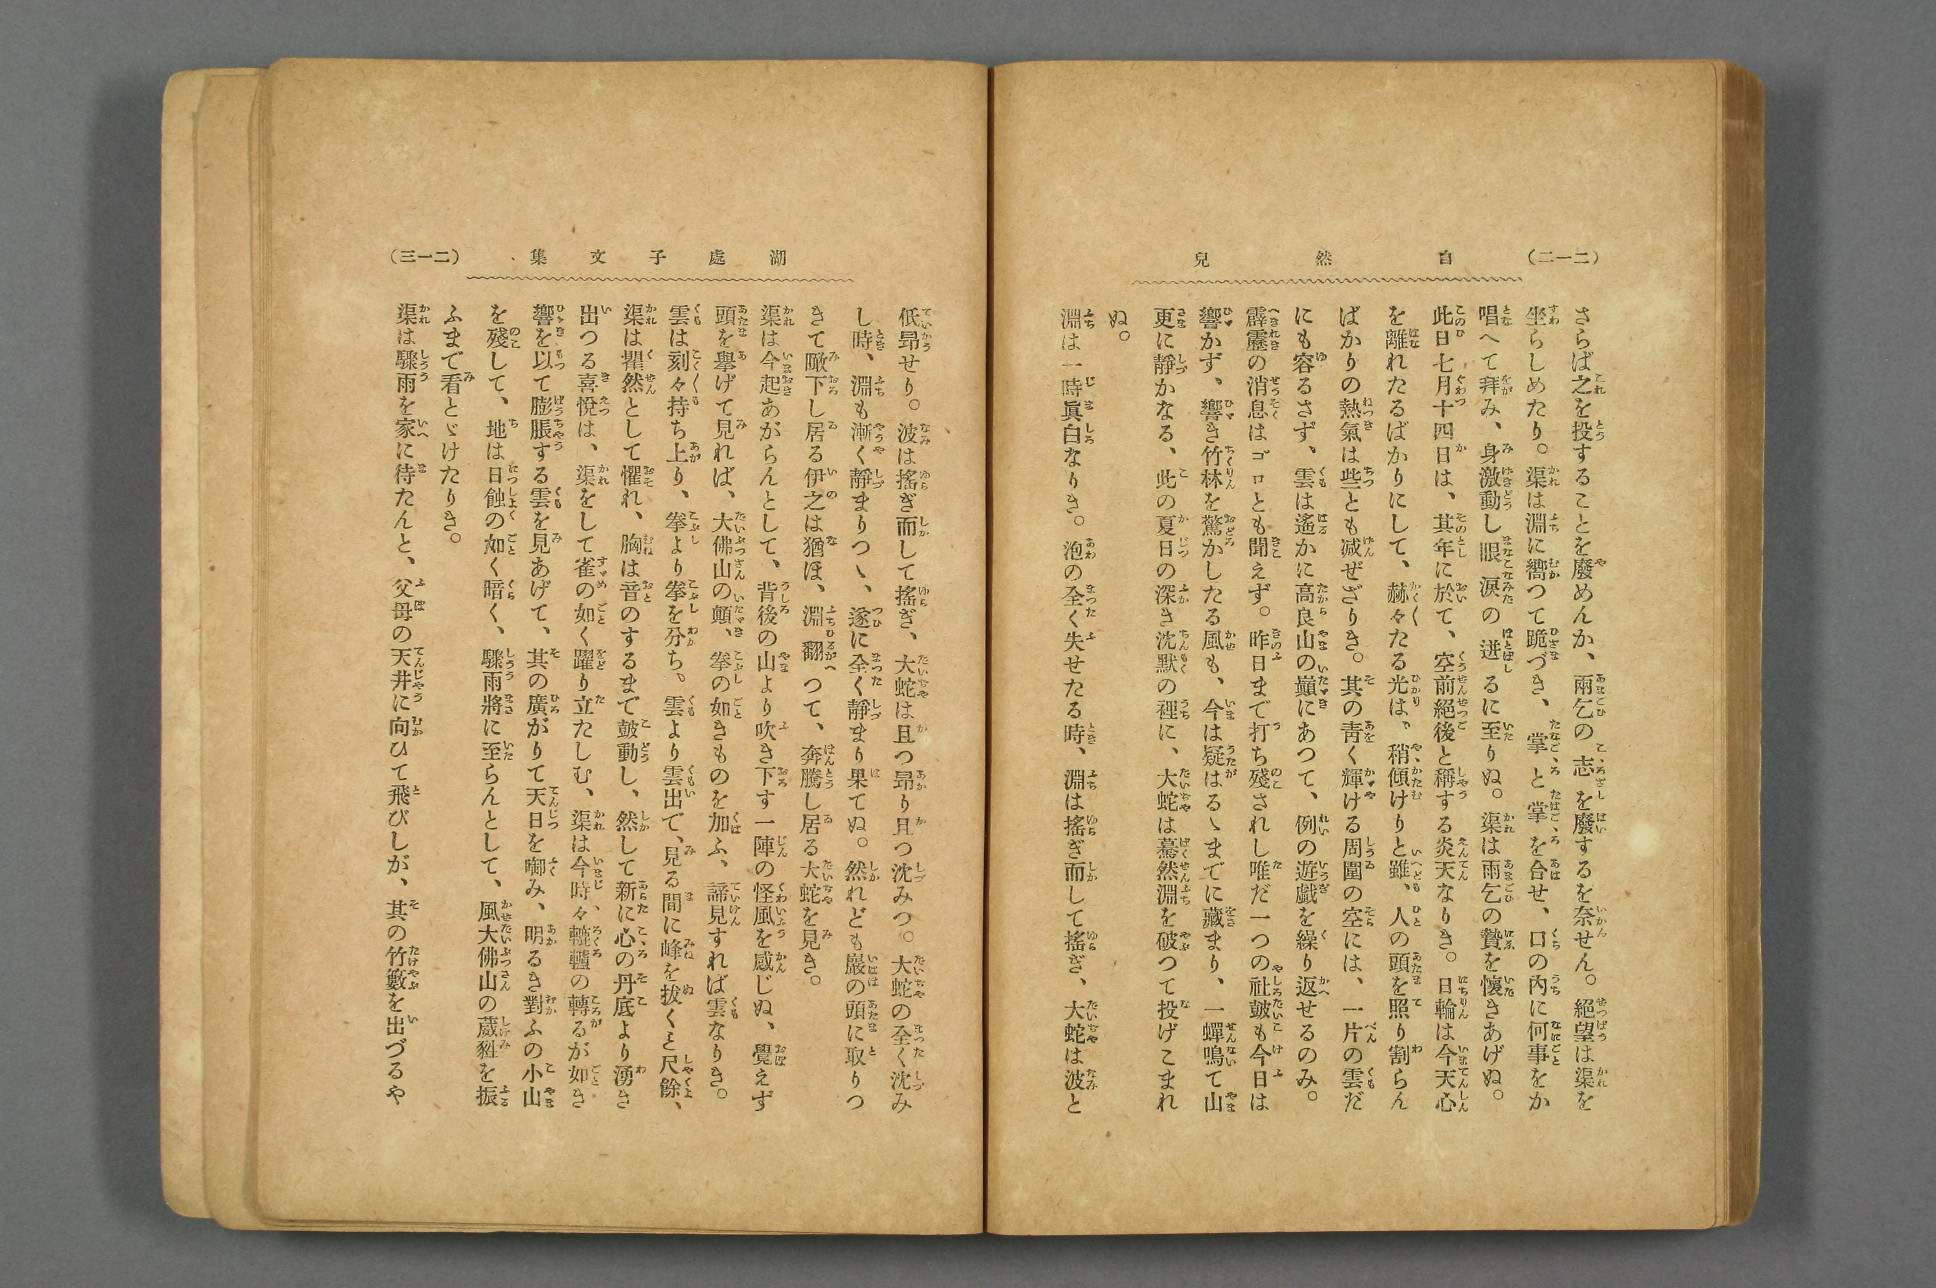 (二一二) 自然兒
さらば之を投することを廢めんか、雨乞の志を廢するを奈せん。絕望は渠を
坐らしめたり。渠は淵に嚮つて跪づき、掌と掌を合せ、口の內に何事をか
唱へて拜み、身激動し眼淚の迸るに至りぬ。渠は雨乞の贄を懷きあげぬ。
此日七月十四日は、其年に於て、空前絕後と稱する炎天なりき。日輪は今天心
を離れたるばかりにして、赫々たる光は、稍傾けりと雖、人の頭を照り割らん
ばかりの熱氣は些とも减ぜざりき。其の靑く輝ける周圍の空には、一片の雲だ
にも容るさず、雲は遙かに高良山の巓にあつて、例の遊戯を繰り返せるのみ。
霹靂の消息はゴロとも聞えず。昨日まで打ち殘されし唯だ一つの社皷も今日は
響かず、響き竹林を驚かしたる風も、今は疑はるゝまでに藏まり、一蟬鳴て山
更に靜かなる、此の夏日の深き沈默の裡に、大蛇は驀然淵を破つて投げこまれ
ぬ。
淵は一時眞白なりき。泡の全く失せたる時、淵は搖ぎ而して搖ぎ、大蛇は波と
湖處子文集 (二一三)
低昂せり。波は搖ぎ而して搖ぎ、大蛇は且つ昂り且つ沈みつ。大蛇の全く沈み
し時、淵も漸く靜まりつゝ、遂に全く靜まり果てぬ。然れども巖の頭に取りつ
きて瞰下し居る伊之は猶ほ、淵翻つて、奔騰し居る大蛇を見き。
渠は今起あがらんとして、背後の山より吹き下す一陣の怪風を感じぬ、覺えず
頭を擧げて見れば、大佛山の顱、拳の如きものを加ふ、諦見すれば雲なりき。
雲は刻々持ち上り、拳より拳を分ち。雲より雲出で、見る間に峰を拔くこと尺餘、
渠は瞿然として懼れ、胸は音のするまで皷動し、然して新に心の丹底より湧き
出つる喜悅は、渠をして雀の如く躍り立たしむ、渠は今時々轆轤の轉るが如き
響を以て膨脹する雲を見あげて、其の廣がりて天日を啣み、明るき對ふの小山
を殘して、地は日蝕の如く暗く、驟雨將に至らんとして、風大佛山の葳蕤を振
ふまで看とゞけたりき。
渠は驟雨を家に待たんと、父母の天井に向ひて飛びしが、其の竹籔を出づるや